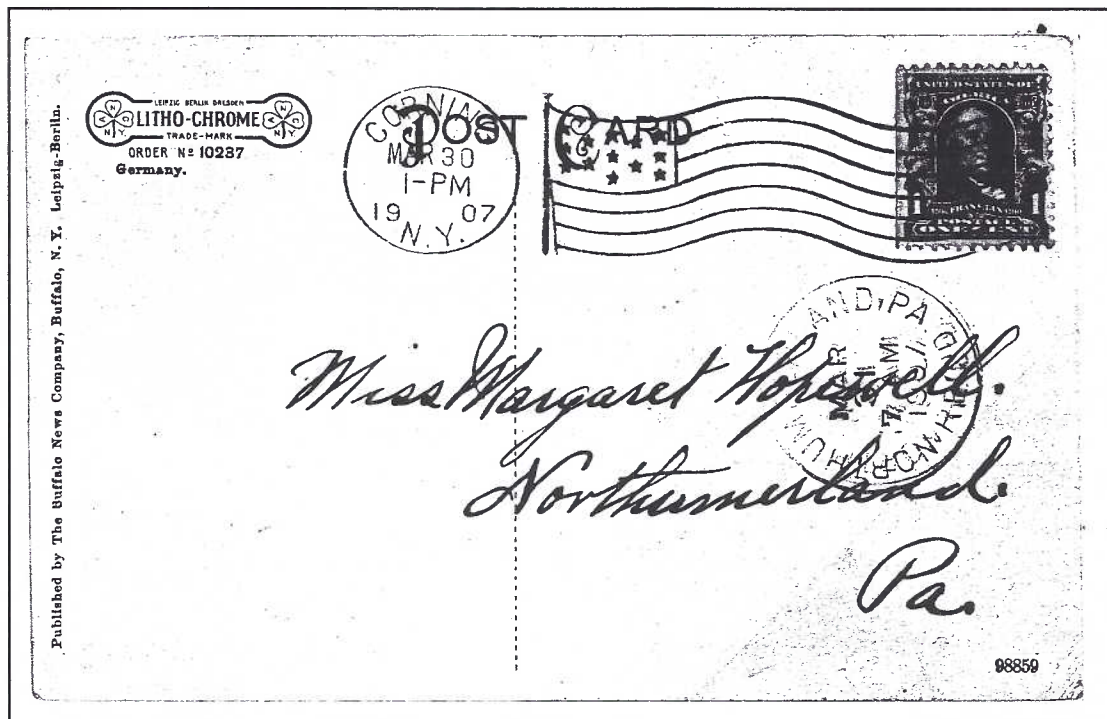 Published by The Buffalo News Company, Buffalo, N. Y. Leipzig-Berlin.
LEIPZIG BERLIN DRESDEN
LITHO-CHROME
TRADE-MARK
ORDER Nº 10237
Germany.
POST CARD
CORNING
MAR 30
1-PM
19 07
N.Y.
UNITED STATES OF
AMERICA
1 1
POSTAGE
ONE CENT
AND, PA.
MAR
7
Miss Margaret Hopewell.
Northumerland.
Pa.
98859